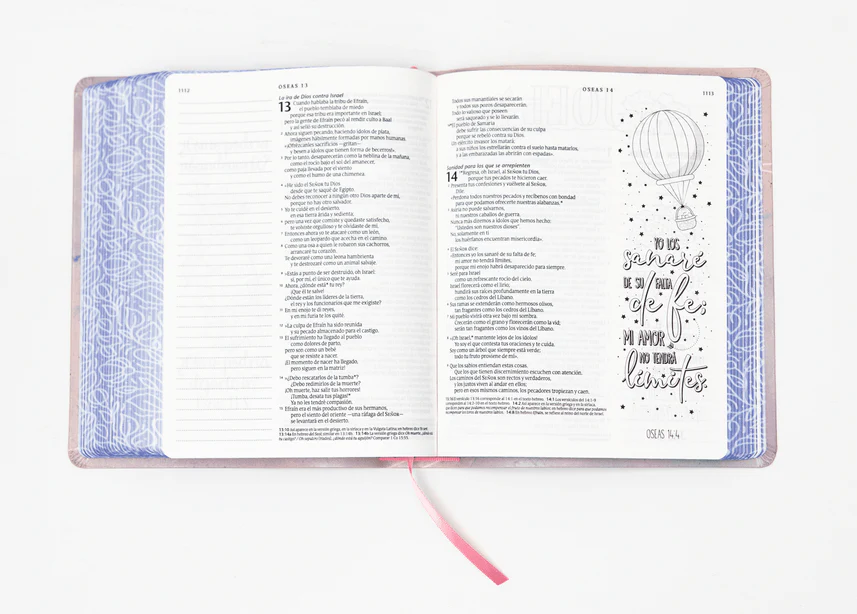 1112
OSEAS 13
La ira de Dios contra Israel
13 Cuando hablaba la tribu de Efraín,
el pueblo temblaba de miedo
porque esa tribu era importante en Israel;
pero la gente de Efraín pecó al rendir culto a Baal
y así selló su destrucción.
2 Ahora siguen pecando haciendo ídolos de plata,
imágenes hábilmente formadas por manos humanas.
«¡Ofrézcanles sacrificios —gritan—
y besen a ídolos que tienen forma de becerros!».
3 Por lo tanto, desaparecerán como la neblina de la mañana,
como el rocío bajo el sol del amanecer,
como paja llevada por el viento
y como el humo de una chimenea.
4 »He sido el SEÑOR tu Dios
desde que te saqué de Egipto.
No debes reconocer a ningún otro Dios aparte de mí,
porque no hay otro salvador.
5 Yo te cuidé en el desierto,
en esa tierra árida y sedienta;
6 pero una vez que comiste y quedaste satisfecho,
te volviste orgulloso y te olvidaste de mí.
7 Entonces ahora yo te atacaré como un león,
como un leopardo que acecha en el camino.
8 Como una osa a quien le robaron sus cachorros,
arrancaré tu corazón.
Te devoraré como una leona hambrienta
y te destrozaré como un animal salvaje.
9 »Estás a punto de ser destruido, oh Israel.
sí, por mí, el único que te ayuda.
10 Ahora, ¿dónde está* tu rey?
¡Que él te salve!
¿Dónde están los líderes de la tierra,
el rey y los funcionarios que me exigiste?
11 En mi enojo te di reyes,
y en mi furia te los quité.
12 »La culpa de Efraín ha sido reunida
y su pecado almacenado para el castigo.
13 El sufrimiento ha llegado al pueblo
como dolores de parto,
pero son como un bebé
que se resiste a nacer.
¡El momento de nacer ha llegado,
pero siguen en la matriz!
14 »¿Debo rescatarlos de la tumba*?
¿Debo redimirlos de la muerte?
¡Oh muerte, haz salir tus horrores!
¡Tumba, desata tus plagas!*
Ya no les tendré compasión.
15 Efraín era el más productivo de sus hermanos,
pero el viento del oriente —una ráfaga del SEÑOR—
se levantará en el desierto.
OSEAS 14
1113
Todos sus manantiales se secarán
y todos sus pozos desaparecerán.
Todo lo valioso que poseen
será saqueado y se lo llevarán.
El pueblo de Samaria
debe sufrir las consecuencias de su culpa
porque se rebeló contra su Dios.
Un ejército invasor los matará;
a sus niños los estrellarán contra el suelo hasta matarlos,
y a las embarazadas las abrirán con espadas».
Sanidad para los que se arrepienten
14 *Regresa, oh Israel, al SEÑOR tu Dios,
porque tus pecados te hicieron caer.
2 Presenta tus confesiones y vuélvete al SEÑOR.
Dile:
«Perdona todos nuestros pecados y recíbenos con bondad
para que podamos ofrecerte nuestras alabanzas.*
3 Asiria no puede salvarnos,
ni nuestros caballos de guerra.
Nunca más diremos a ídolos que hemos hecho:
"Ustedes son nuestros dioses".
No, solamente en ti
los huérfanos encuentran misericordia».
4 El SEÑOR dice:
«Entonces yo los sanaré de su falta de fe;
mi amor no tendrá límites,
porque mi enojo habrá desaparecido para siempre.
5 Seré para Israel
como un refrescante rocío del cielo.
Israel florecerá como el lirio;
hundirá sus raíces profundamente en la tierra
como los cedros del Líbano.
6 Sus ramas se extenderán como hermosos olivos,
tan fragantes como los cedros del Líbano.
7 Mi pueblo vivirá otra vez bajo mi sombra.
Crecerán como el grano y florecerán como la vid;
serán tan fragantes como los vinos del Líbano.
8 »¡Oh Israel,* mantente lejos de los ídolos!
Yo soy el que contesta tus oraciones y te cuida.
Soy como un árbol que siempre está verde;
todo tu fruto proviene de mí».
9 Que los sabios entiendan estas cosas.
Que los que tienen discernimiento escuchen con atención.
Los caminos del SEÑOR son rectos y verdaderos,
y los justos viven al andar en ellos;
pero en esos mismos caminos, los pecadores tropiezan y caen.
YO LOS
sanaré
DE SU FALTA
de fe;
MI AMOR
NO TENDRÁ
límites.
OSEAS 14:4